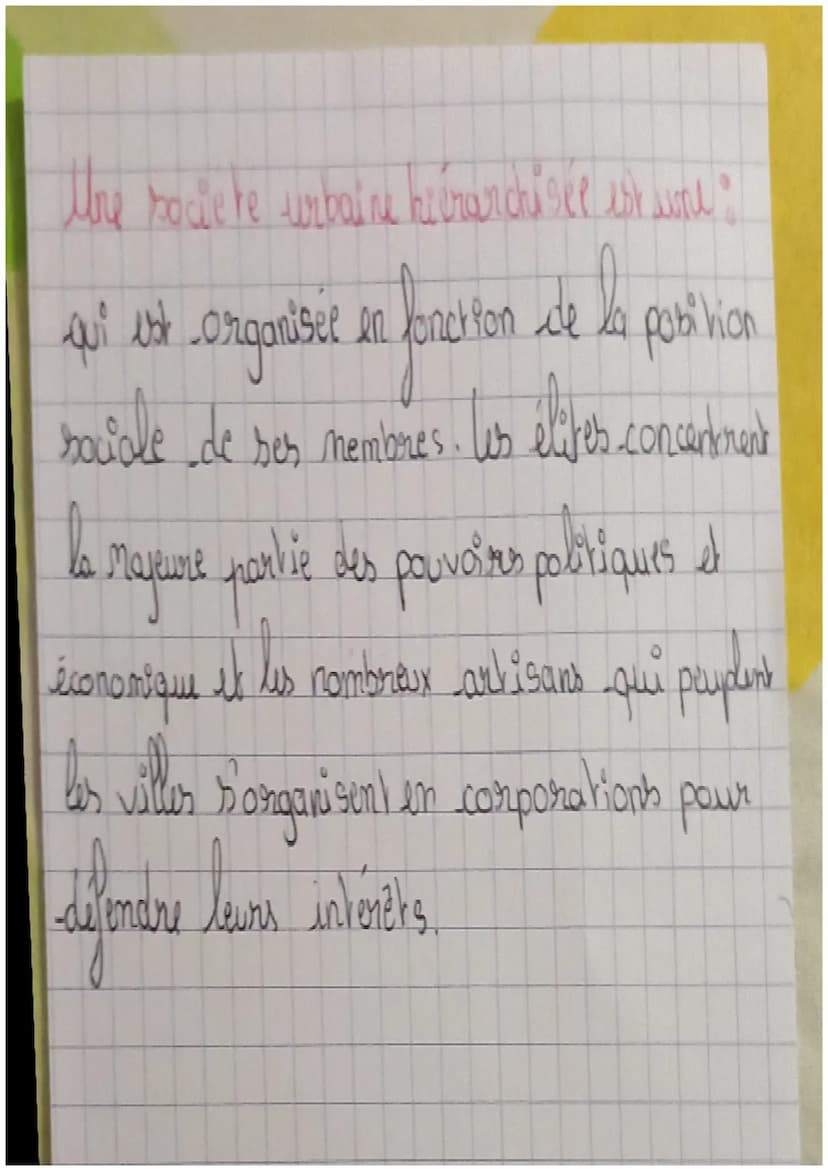 Une societe urbaine hiérarchisée est une :
qui est organisée en fonction de la position
sociale de ses membres. Les élites concentrent
la majeure partie des pouvoirs politiques et
économique et les nombreux artisans qui peuplent
les villes s'organisent en corporations pour
défendre leurs intérêts.